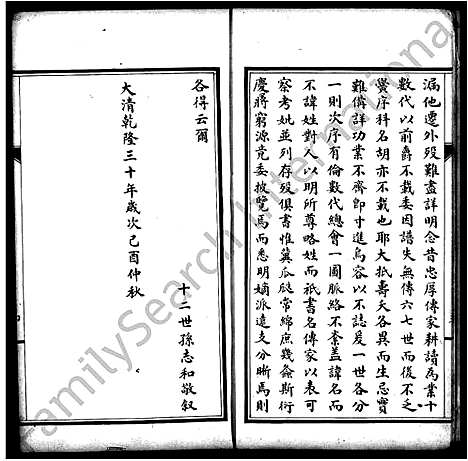 漏他遷外歿難盡詳明念昔忠厚傳家耕讀為業十
數代以前爵不載委因譜失無傳六七世而後不乏
黌序科名胡亦不載也耶大抵壽夭各異而生忌實
難備詳功業不齊即寸進烏容以不誌爰一世各分
一則次序有倫數代總會一圖脈絡不紊蓋諱名而
不諱姓對人以明所尊略姓而祇書名傳家以表可
察考妣並列存歿俱書惟冀瓜瓞常綿庶幾螽斯衍
慶將窮源竟委披覽焉而悉明嫡派遠支分晰焉則
各得云爾
大清乾隆三十年歲次己酉仲秋
十二世孫志和敬叙
FamilySearch International